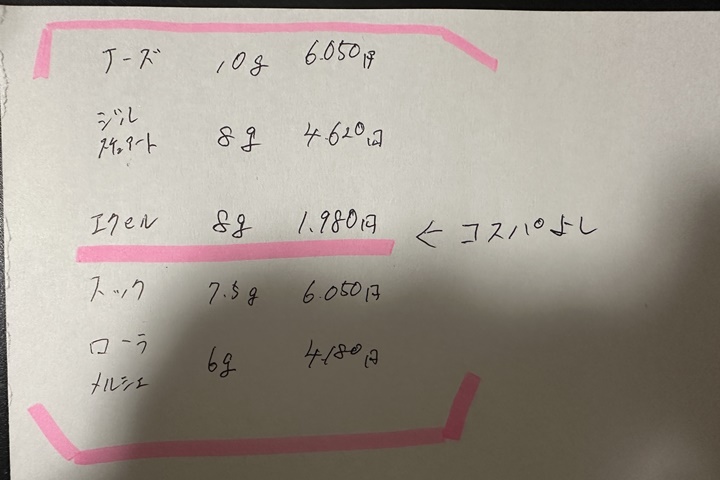 ナーズ 10g 6.050円
ジル
スチュアート 8g 4.620円
エクセル 8g 1.980円 ← コスパよし
スック 7.5g 6.050円
ローラ
メルシエ 6g 4.180円